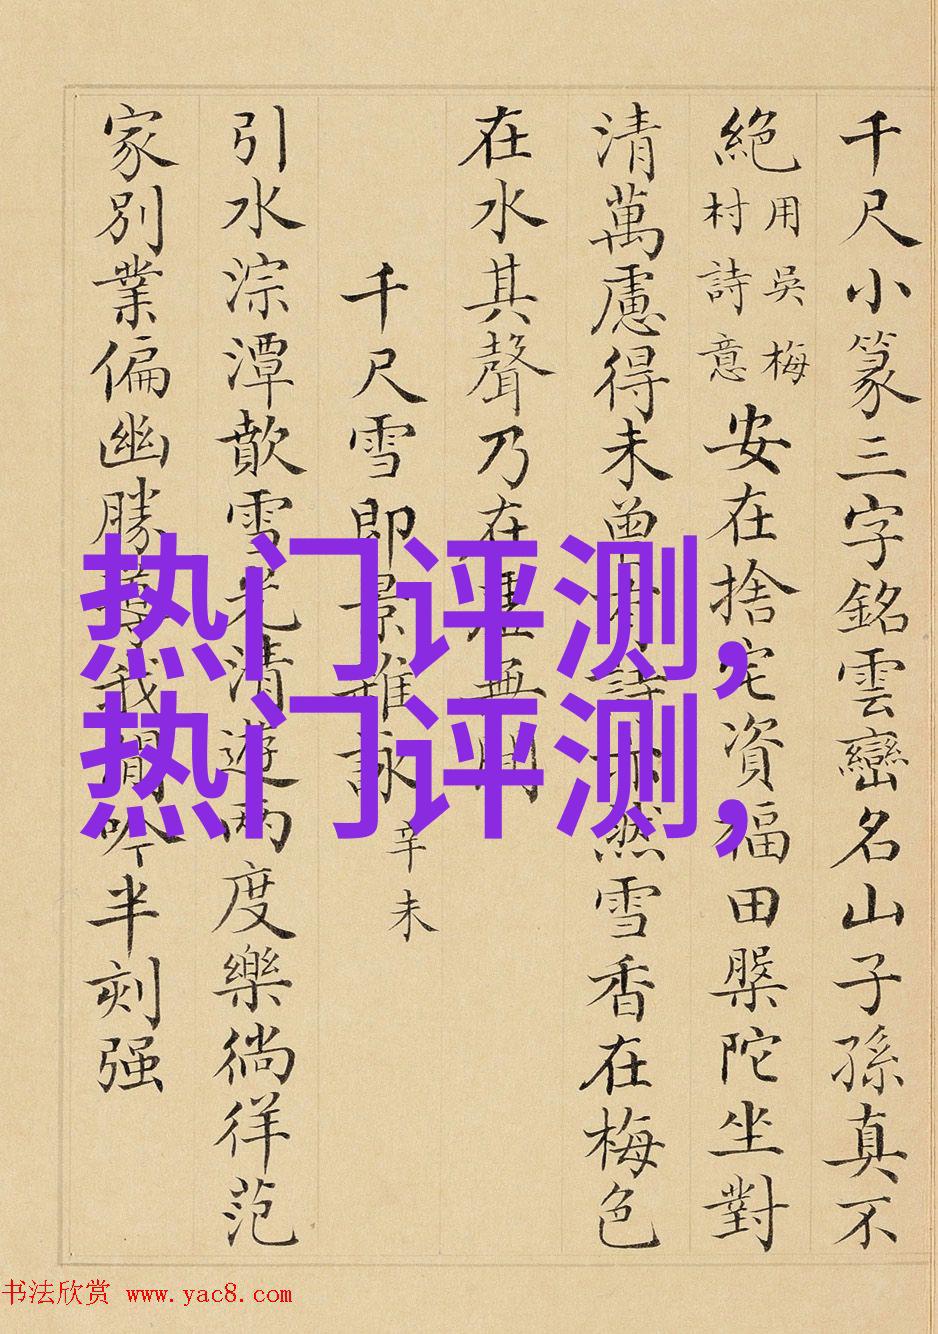 千尺小篆三字銘雲巒名山子孫真不
絕用吳梅村詩意安在捨宅資福田槃陀坐對
清萬慮得未曾有詩亦然雪香在梅色
在水其聲乃在虛無間
千尺雪即景雜詠辛未
引水淙潭歕雪光清遊兩度樂徜徉范
家別業偏幽勝我閒吟半刻强
热门评测,
热门评测,
书法欣赏 www.yac8.com